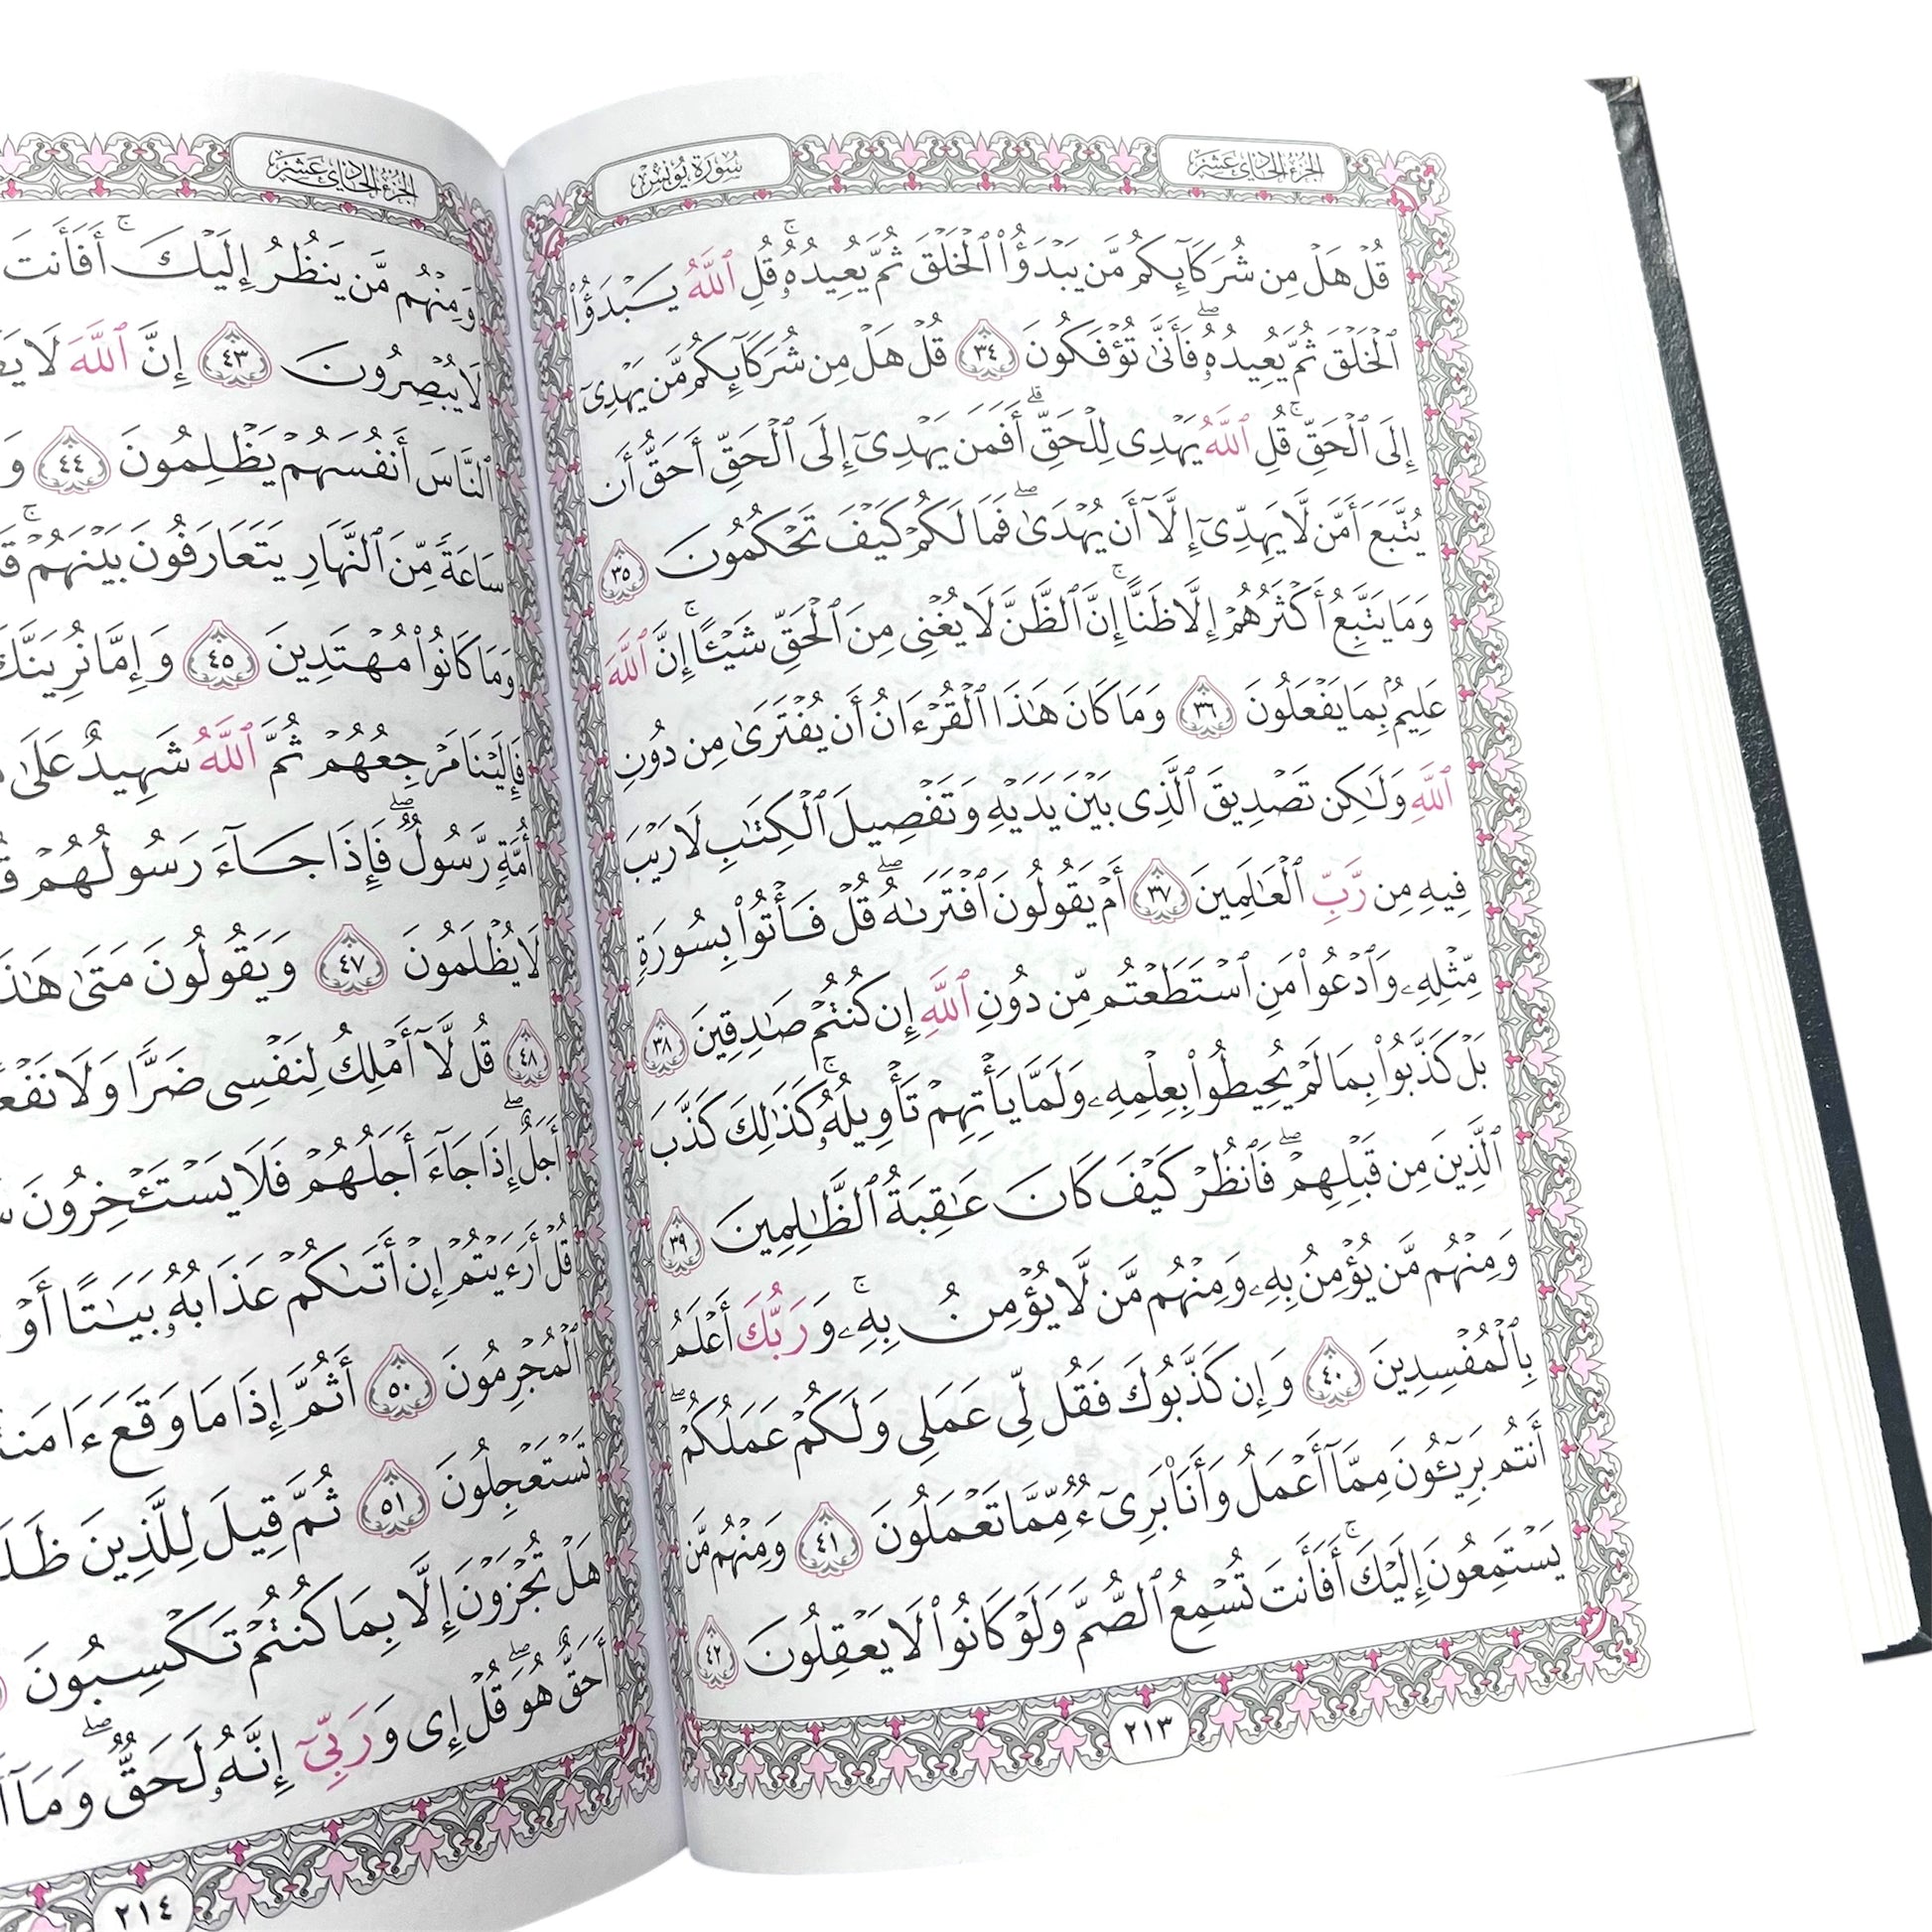 سُورَةُ يُونُسَ
الجُزءُ الحَادِي عَشَرَ
قُلۡ هَلۡ مِن شُرَكَآئِكُم مَّن يَبۡدَؤُاْ ٱلۡخَلۡقَ ثُمَّ يُعِيدُهُۥۚ قُلِ ٱللَّهُ يَبۡدَؤُاْ
ٱلۡخَلۡقَ ثُمَّ يُعِيدُهُۥۖ فَأَنَّىٰ تُؤۡفَكُونَ ٣٤ قُلۡ هَلۡ مِن شُرَكَآئِكُم مَّن يَهۡدِيٓ
إِلَى ٱلۡحَقِّۚ قُلِ ٱللَّهُ يَهۡدِي لِلۡحَقِّۗ أَفَمَن يَهۡدِيٓ إِلَى ٱلۡحَقِّ أَحَقُّ أَن
يُتَّبَعَ أَمَّن لَّا يَهِدِّيٓ إِلَّآ أَن يُهۡدَىٰۖ فَمَا لَكُمۡ كَيۡفَ تَحۡكُمُونَ ٣٥
وَمَا يَتَّبِعُ أَكۡثَرُهُمۡ إِلَّا ظَنًّاۚ إِنَّ ٱلظَّنَّ لَا يُغۡنِي مِنَ ٱلۡحَقِّ شَيۡـًٔاۚ إِنَّ ٱللَّهَ
عَلِيمُۢ بِمَا يَفۡعَلُونَ ٣٦ وَمَا كَانَ هَٰذَا ٱلۡقُرۡءَانُ أَن يُفۡتَرَىٰ مِن دُونِ
ٱللَّهِ وَلَٰكِن تَصۡدِيقَ ٱلَّذِي بَيۡنَ يَدَيۡهِ وَتَفۡصِيلَ ٱلۡكِتَٰبِ لَا رَيۡبَ
فِيهِ مِن رَّبِّ ٱلۡعَٰلَمِينَ ٣٧ أَمۡ يَقُولُونَ ٱفۡتَرَىٰهُۖ قُلۡ فَأۡتُواْ بِسُورَةٖ
مِّثۡلِهِۦ وَٱدۡعُواْ مَنِ ٱسۡتَطَعۡتُم مِّن دُونِ ٱللَّهِ إِن كُنتُمۡ صَٰدِقِينَ ٣٨
بَلۡ كَذَّبُواْ بِمَا لَمۡ يُحِيطُواْ بِعِلۡمِهِۦ وَلَمَّا يَأۡتِهِمۡ تَأۡوِيلُهُۥۚ كَذَٰلِكَ كَذَّبَ
ٱلَّذِينَ مِن قَبۡلِهِمۡۖ فَٱنظُرۡ كَيۡفَ كَانَ عَٰقِبَةُ ٱلظَّٰلِمِينَ ٣٩
وَمِنۡهُم مَّن يُؤۡمِنُ بِهِۦ وَمِنۡهُم مَّن لَّا يُؤۡمِنُ بِهِۦۚ وَرَبُّكَ أَعۡلَمُ
بِٱلۡمُفۡسِدِينَ ٤٠ وَإِن كَذَّبُوكَ فَقُل لِّي عَمَلِي وَلَكُمۡ عَمَلُكُمۡۖ
أَنتُم بَرِيٓـُٔونَ مِمَّآ أَعۡمَلُ وَأَنَا۠ بَرِيٓءٞ مِّمَّا تَعۡمَلُونَ ٤١ وَمِنۡهُم مَّن
يَسۡتَمِعُونَ إِلَيۡكَۚ أَفَأَنتَ تُسۡمِعُ ٱلصُّمَّ وَلَوۡ كَانُواْ لَا يَعۡقِلُونَ ٤٢
٢١٣
الجُزءُ الحَادِي عَشَرَ
وَمِنۡهُم مَّن يَنظُرُ إِلَيۡكَۚ أَفَأَنتَ
لَا يُبۡصِرُونَ ٤٣ إِنَّ ٱللَّهَ لَا
ٱلنَّاسَ أَنفُسَهُمۡ يَظۡلِمُونَ ٤٤
سَاعَةٗ مِّنَ ٱلنَّهَارِ يَتَعَارَفُونَ بَيۡنَهُمۡۚ
وَمَا كَانُواْ مُهۡتَدِينَ ٤٥ وَإِمَّا نُرِيَنَّكَ
فَإِلَيۡنَا مَرۡجِعُهُمۡ ثُمَّ ٱللَّهُ شَهِيدٌ عَلَىٰ
أُمَّةٖ رَّسُولٞۖ فَإِذَا جَآءَ رَسُولُهُمۡ
لَا يُظۡلَمُونَ ٤٧ وَيَقُولُونَ مَتَىٰ
٤٨ قُل لَّآ أَمۡلِكُ لِنَفۡسِي ضَرّٗا وَلَا
أَجَلٌۚ إِذَا جَآءَ أَجَلُهُمۡ فَلَا يَسۡتَـٔۡخِرُونَ
قُلۡ أَرَءَيۡتُمۡ إِنۡ أَتَىٰكُمۡ عَذَابُهُۥ بَيَٰتًا أَوۡ
ٱلۡمُجۡرِمُونَ ٥٠ أَثُمَّ إِذَا مَا وَقَعَ
تَسۡتَعۡجِلُونَ ٥١ ثُمَّ قِيلَ لِلَّذِينَ
هَلۡ تُجۡزَوۡنَ إِلَّا بِمَا كُنتُمۡ تَكۡسِبُونَ
أَحَقٌّ هُوَۖ قُلۡ إِي وَرَبِّيٓ إِنَّهُۥ لَحَقّٞۖ وَمَآ
٢١٤